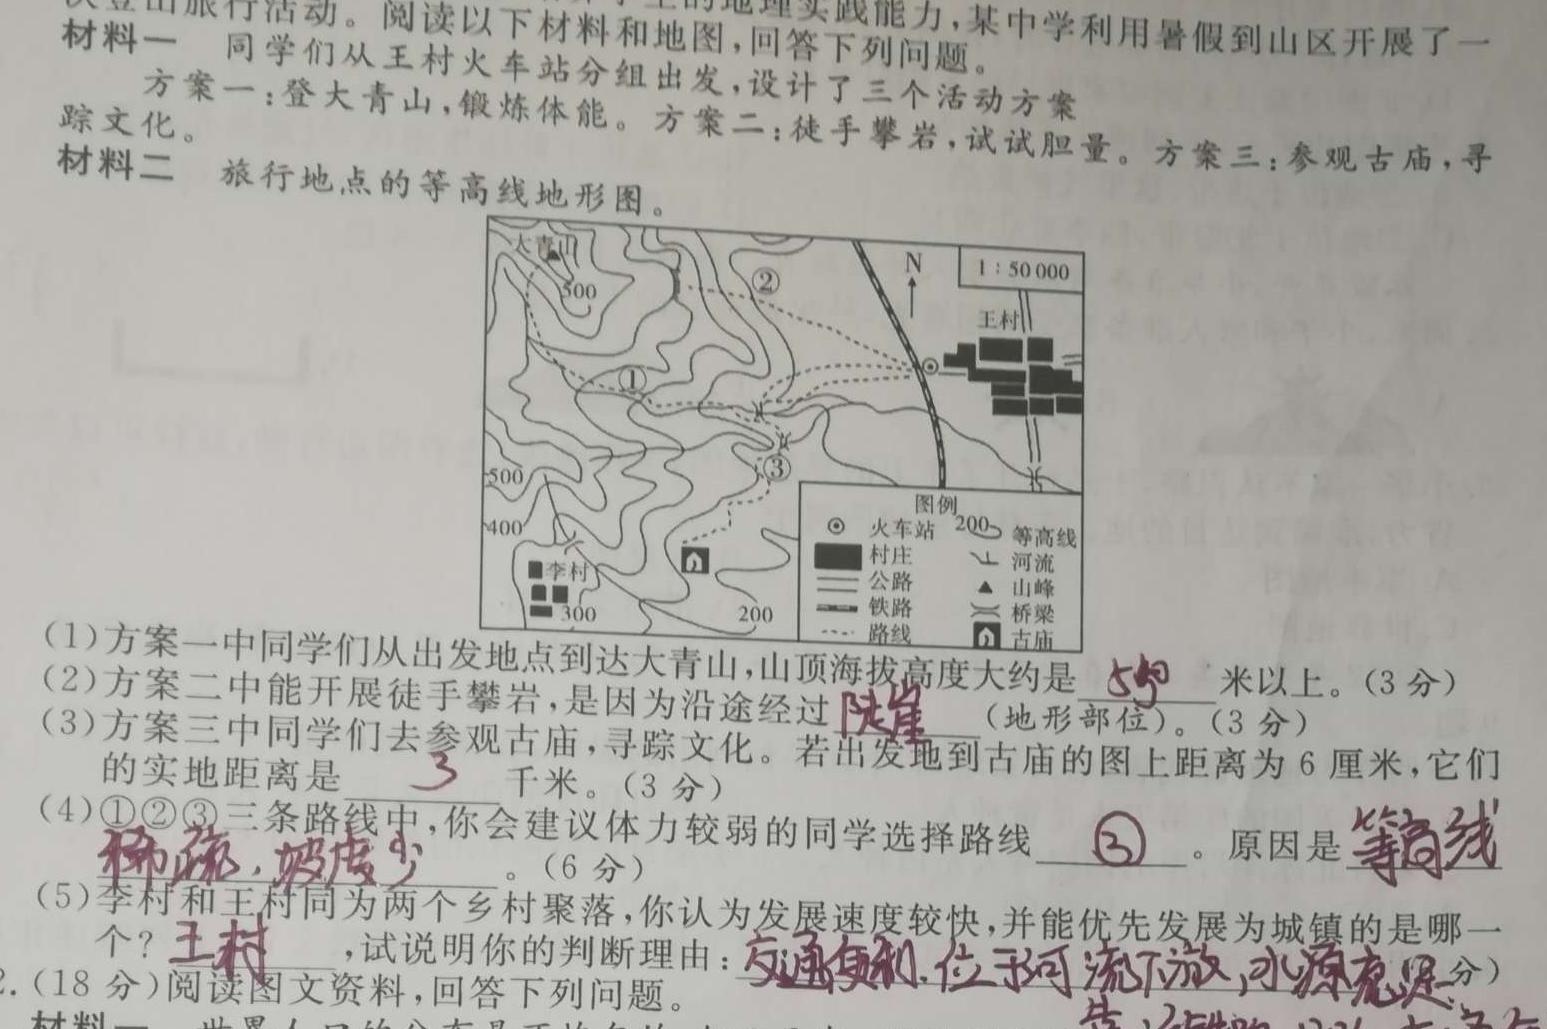 次登山旅行活动。阅读以下材料和地图,回答下列问题。
的地理实践能力,某中学利用暑假到山区开展了一
材料一 同学们从王村火车站分组出发,设计了三个活动方案
方案一:登大青山,锻炼体能。方案二:徒手攀岩,试试胆量。方案三:参观古庙,寻
踪文化。
材料二 旅行地点的等高线地形图。
大青山
500
②
N
1:50 000
王村
①
③
500
400
李村
300
200
图例
火车站
200
等高线
村庄
河流
公路
山峰
铁路
桥梁
路线
古庙
(1)方案一中同学们从出发地点到达大青山,山顶海拔高度大约是 500 米以上。(3分)
(2)方案二中能开展徒手攀岩,是因为沿途经过 陡崖 (地形部位)。(3分)
(3)方案三中同学们去参观古庙,寻踪文化。若出发地到古庙的图上距离为6厘米,它们
的实地距离是 3 千米。(3分)
(4)①②③三条路线中,你会建议体力较弱的同学选择路线 ③ 。原因是 等高线
稀疏,坡度少 。(6分)
(5)李村和王村同为两个乡村聚落,你认为发展速度较快,并能优先发展为城镇的是哪一
个? 王村 ,试说明你的判断理由: 交通便利.位于河流下游,水源充足. 分)
2.(18分)阅读图文资料,回答下列问题。
材料一